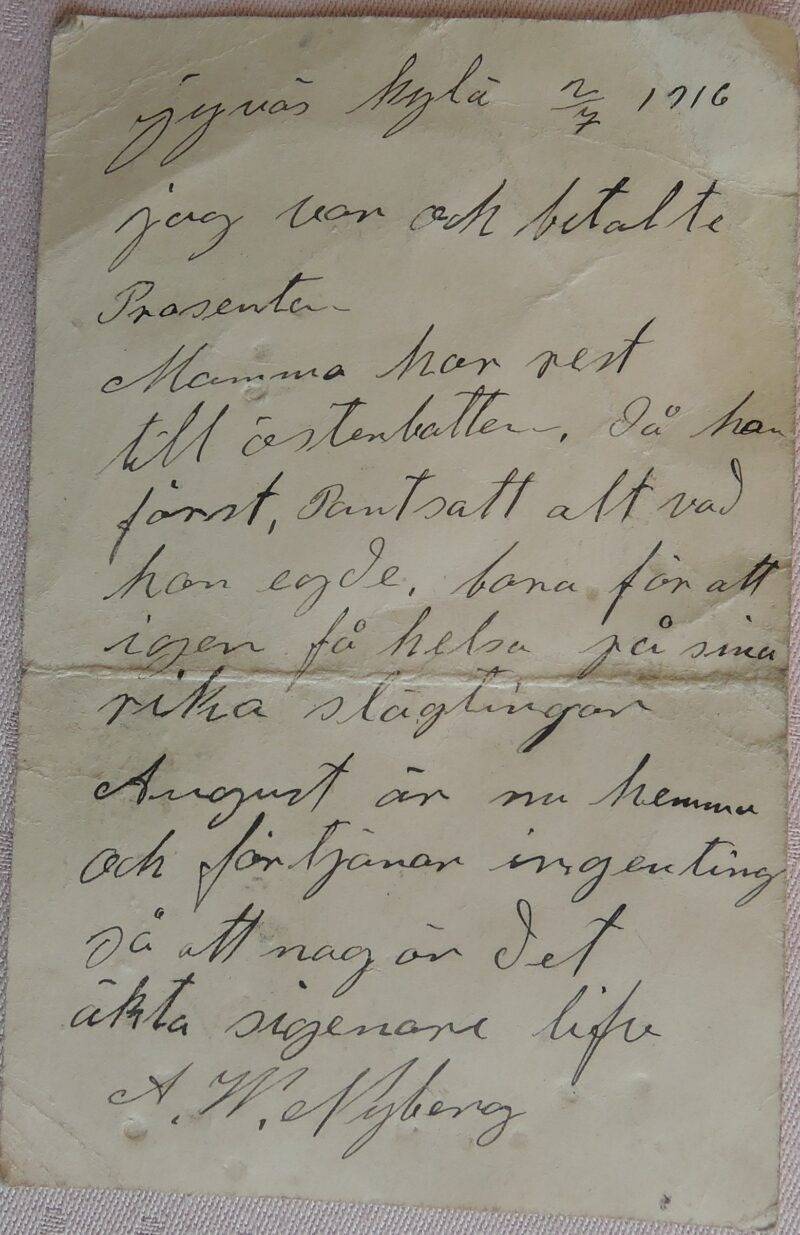 jyväs kylä 2/7 1916
jag var och betalte
Prosenten
Mamma har rest
till österbotten, då han
först, Pantsatt alt vad
han egde, bara för att
igen få helsa på sina
rika slägtingar
August är nu hemma
och förtjänar ingenting
så att nog är det
äkta sigenare lifve
A. W. Nyberg